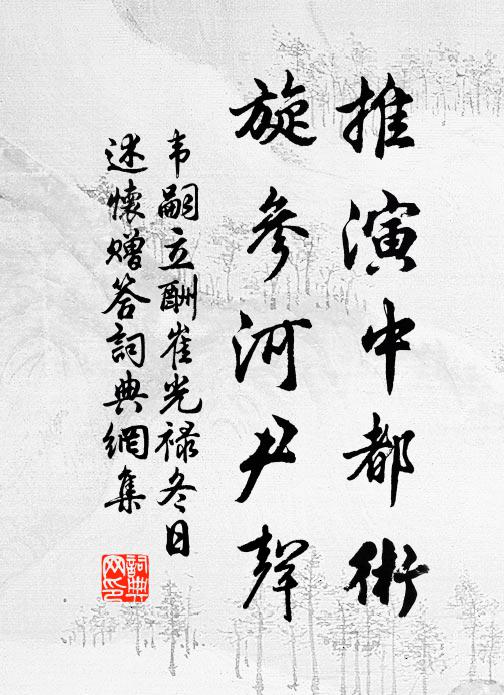 推演中都術
旋參河尹聲
韦嗣立酬崔光祿冬日
述懷贈答詞典網集
詞典網印